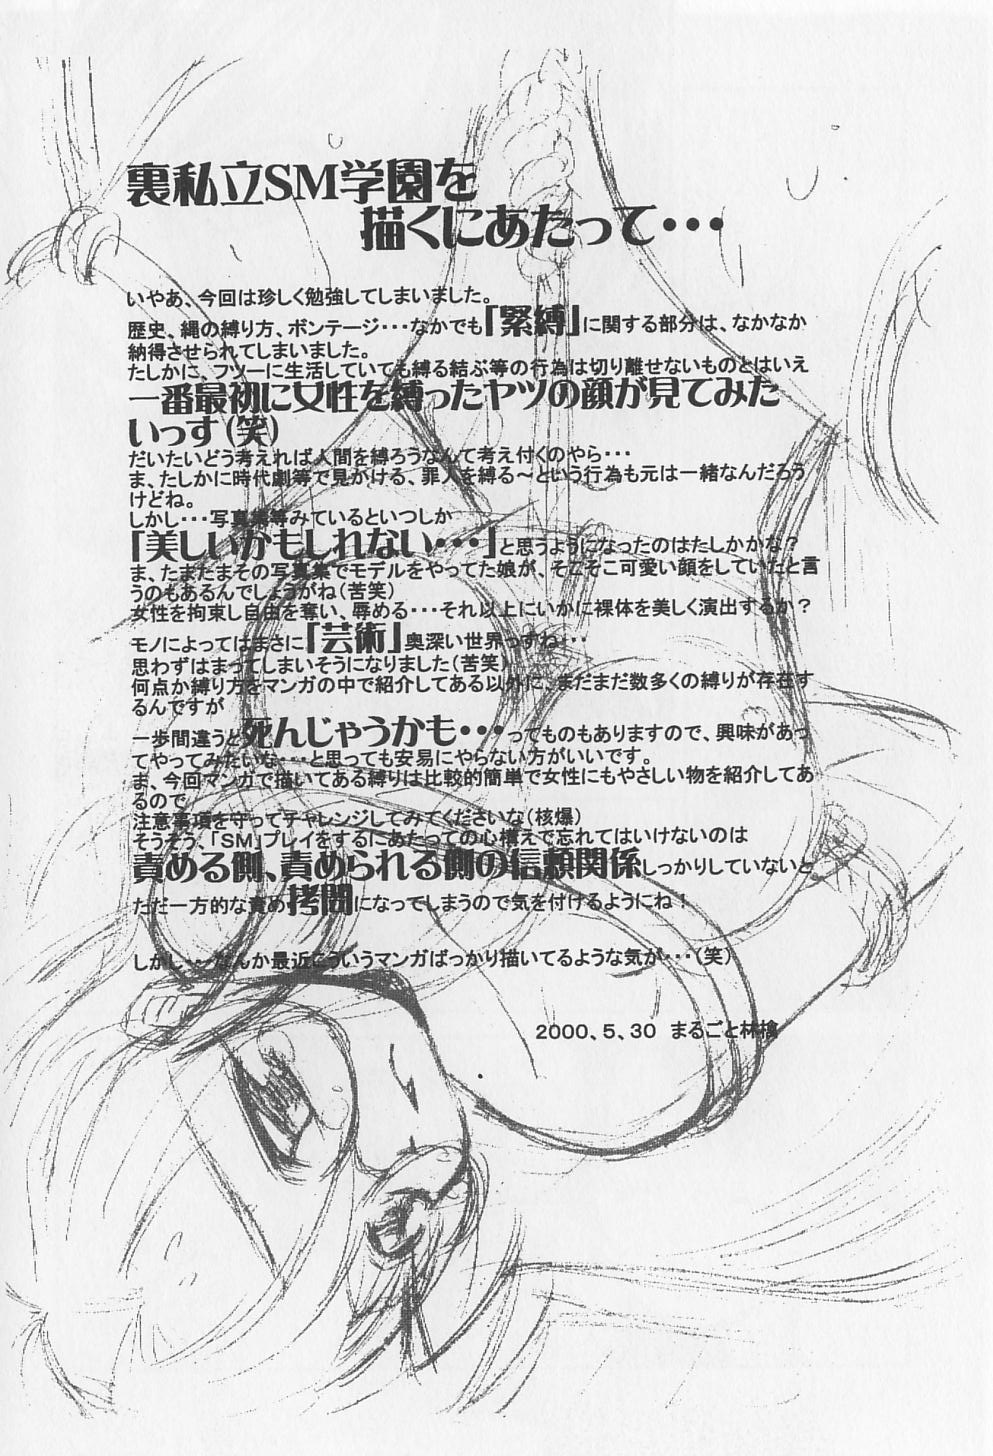 裏私立SM学園を
描くにあたって・・・
いやあ、今回は珍しく勉強してしまいました。
歴史、縄の縛り方、ボンテージ・・・なかでも「緊縛」に関する部分は、なかなか
納得させられてしまいました。
たしかに、フツーに生活していても縛る結ぶ等の行為は切り離せないものとはいえ
一番最初に女性を縛ったヤツの顔が見てみた
いっす(笑)
だいたいどう考えれば人間を縛ろうなんて考え付くのやら・・・
ま、たしかに時代劇等で見かける、罪人を縛る～という行為も元は一緒なんだろう
けどね。
しかし・・・写真集等みているといつしか
「美しいかもしれない・・・」と思うようになったのはたしかかな？
ま、たまたまその写真集でモデルをやってた娘が、そこそこ可愛い顔をしていたと言
うのもあるんでしょうがね(苦笑)
女性を拘束し自由を奪い、辱める・・・それ以上にいかに裸体を美しく演出するか？
モノによってはまさに「芸術」奥深い世界っすね・・・
思わずはまってしまいそうになりました(苦笑)
何点か縛り方をマンガの中で紹介してある以外に、まだまだ数多くの縛りが存在す
るんですが
一歩間違うと死んじゃうかも・・・ってものもありますので、興味があっ
てやってみたいな・・・と思っても安易にやらない方がいいです。
ま、今回マンガで描いてある縛りは比較的簡単で女性にもやさしい物を紹介してあ
るので
注意事項を守ってチャレンジしてみてくださいな(核爆)
そうそう、「SM」プレイをするにあたっての心構えで忘れてはいけないのは
責める側、責められる側の信頼関係しっかりしていないと、
ただ一方的な責め拷問になってしまうので気を付けるようにね！
しかし・・・なんか最近こういうマンガばっかり描いてるような気が・・・(笑)
2000、5、30　まるごと林檎